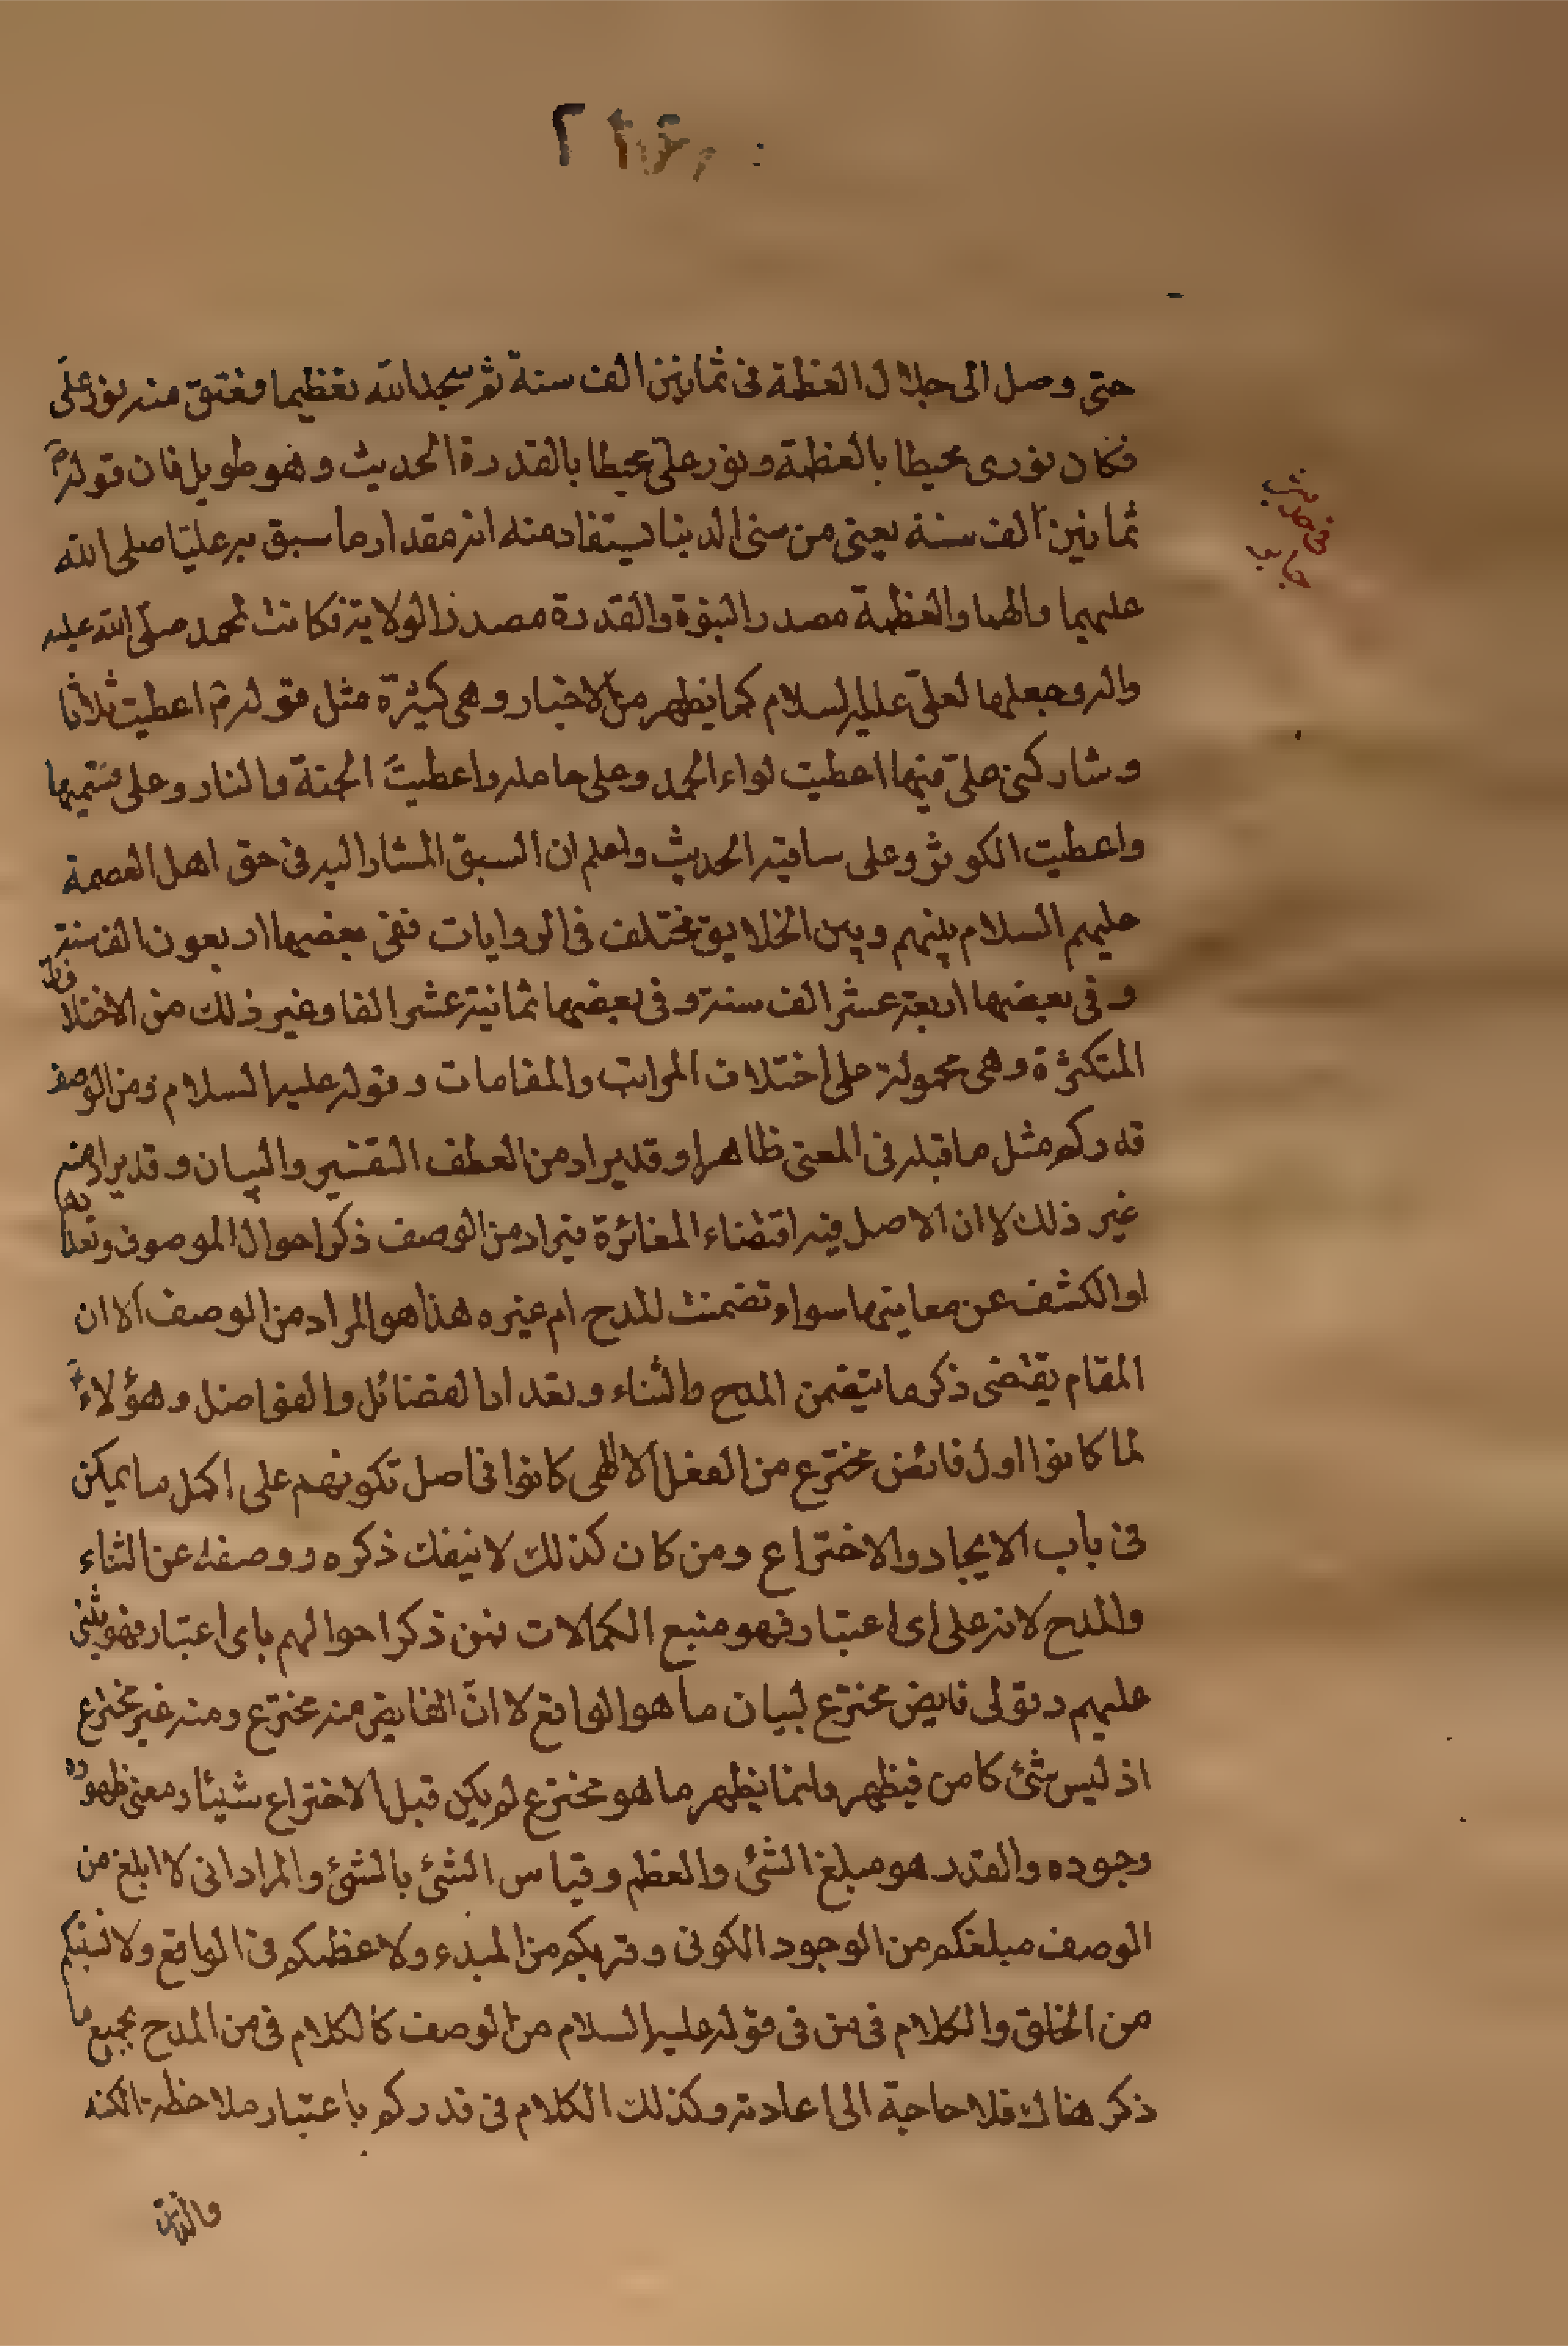 حتى وصل الى جلال العظمة فى ثمانين الف سنة ثم سجد لله تعظيما ففتق منه نور علىّ
فكان نورى محيطا بالعظمة ونور علىّ محيطا بالقدرة الحديث وهو طويل فان قوله ص
ثمانين الف سنة يعنى من سنى الدنيا يستفاد منه انه مقدار ما سبق به عليّا صلى الله
عليهما والهما والعظمة مصدر النبوّة والقدرة مصدر الولاية فكانت لمحمد صلّى الله عليه
واله وجعلها لعلىّ عليه السلام كما يظهر من الاخبار وهى كثيرة مثل قوله ص اعطيت ثلاثا
وشاركنى علىّ فيها اعطيت لواء الحمد وعلى حامله واعطيت الجنة والنار وعلى قسيمها
واعطيت الكوثر وعلى ساقيه الحديث واعلم ان السبق المشار اليه فى حق اهل العصمة
عليهم السلام بينهم وبين الخلايق مختلف فى الروايات ففى بعضها اربعون الف سنة
وفى بعضها اربعة عشر الف سنة وفى بعضها ثمانية عشر الفا وغير ذلك من الاختلافات
المتكثرة وهى محمولة على اختلاف المراتب والمقامات وقوله عليه السلام ومن الوصف
قدركم مثل ما قبله فى المعنى ظاهرا وقد يراد من العطف التفسير والبيان وقد يراد منه
غير ذلك لان الاصل فيه اقتضاء المغائرة فيراد من الوصف ذكر احوال الموصوف وتعدادها
او الكشف عن معاينها سواء تضمنت للمدح ام غيره هذا هو المراد من الوصف الا ان
المقام يقتضى ذكر ما يتضمن المدح والثناء وتعداد الفضائل والفواضل وهؤلاء ع
لما كانوا اول فائض مخترع من الفعل الالهى كانوا فى اصل تكونهم على اكمل ما يمكن
فى باب الايجاد والاختراع ومن كان كذلك لا ينفك ذكره ووصفه عن الثناء
والمدح لانه على اى اعتبار فهو منبع الكمالات فمن ذكر احوالهم باى اعتبار فهو يثنى
عليهم وقولى فايض مخترع لبيان ما هو الواقع لا انّ الفايض منه مخترع ومنه غير مخترع
اذ ليس شئ كامن فيظهر وانما يظهر ما هو مخترع لم يكن قبل الاختراع شيئا ومعنى ظهوره
وجوده والقدر هو مبلغ الشئ والعظم وقياس الشئ بالشئ والمراد انى لا ابلغ من
الوصف مبلغكم من الوجود الكونى وقربكم من المبدء ولا عظمكم فى الواقع ولا نسبتكم
من الخلق والكلام فى من فى قوله عليه السلام من الوصف كالكلام فى من المدح بجميع ما
ذكر هناك فلا حاجة الى اعادته وكذلك الكلام فى قدركم باعتبار ملاحظة الكنه